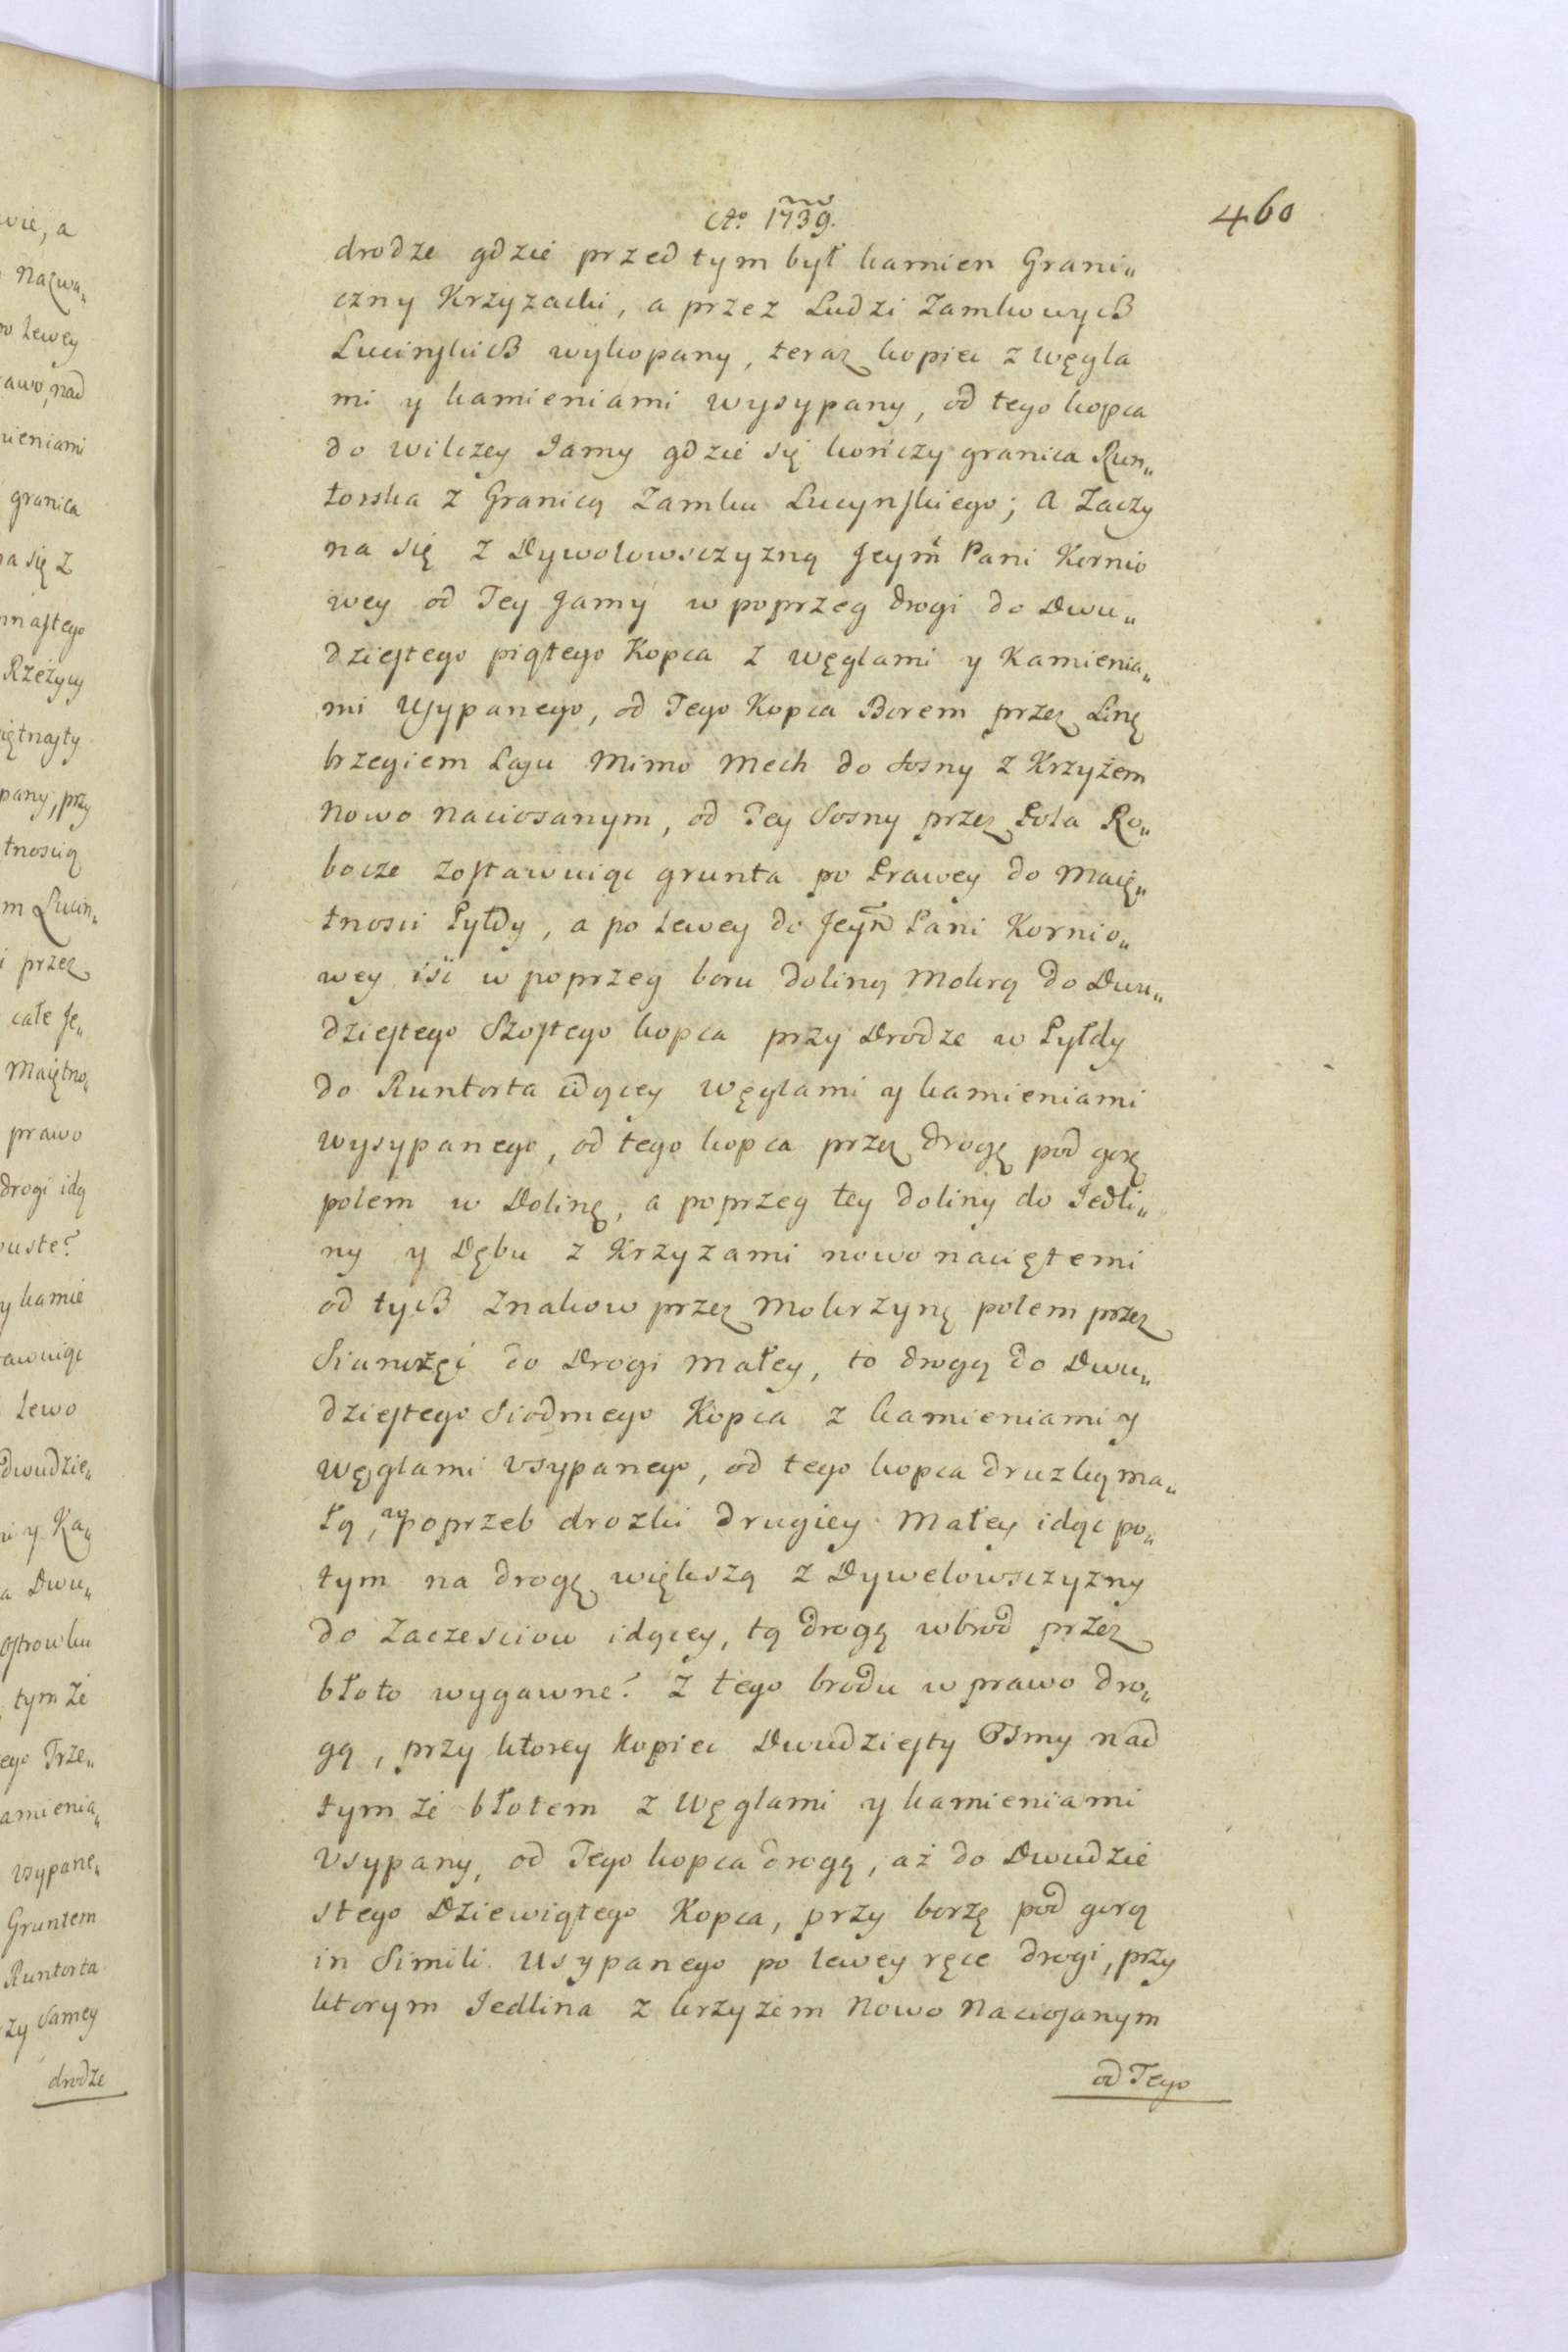 Aō. 1739.
460
drodze gdzie przed tym był kamien Grani„
czny Krzyzacki, a przez Ludzi Zamkowych
Lucinskich wykopany, teraz kopiec z węgla
mi y kamieniami wysypany, od tego kopca
do wilczey Jamy gdzie się kończy granica Run„
torska z Granicą Zamku Lucynskiego; a Zaczy
na się z Dywolowsczyzną Jeym̃ Pani Kornio
wey od Tey Jamy w poprzeg drogi do Dwu„
dziestego piątego Kopca z węglami y Kamienia„
mi Usypanego, od Tego Kopca Borem przez Linę
brzegiem Lasu Mimo Mech do Sosny z Krzyżem
nowo naciosanym, od Tey Sosny przez Pola Ro„
bocze zostawuiąc grunta po Prawey do Maię„
tnosci Pyłdy, a po Lewey do Jeym̃ Pani Kornio„
wey iśc w poprzeg boru doliną Mokrą do Dwu„
dziestego Szostego kopca przy Drodze w Pyłdy
do Runtorta idącey węglami y kamieniami
wysypanego, od tego kopca przez drogę pod gorę
polem w Dolinę, a poprzeg tey doliny do Jedli„
ny y Dębu z Krzyzami nowo naciętemi
od tych Znakow przez Mokrzynę polem przez
Sianożęć do Drogi małey, to drogą do Dwu„
dziestego Siodmego Kopca z kamieniami y
węglami vsypanego, od tego kopca druzką ma„
łą, w poprzeb drozki drugiey Małey idąc po„
tym na drogę większą z Dywelowsczyzny
do Zaczesciow idącey, tą drogą wbrod przez
błoto wygawne? z tego brodu w prawo dro„
gą, przy ktorey kopiec Dwudziesty Osmy nad
tym że błotem z Węglami y kamieniami
Vsypany, od Tego kopca drogą, aż do Dwudzie
stego Dziewiątego Kopca, przy borzę pod gorą
in Simili Usypanego po lewey ręce drogi, przy
ktorym Jedlina z krzyżem Nowo Naciosanym
od Tego